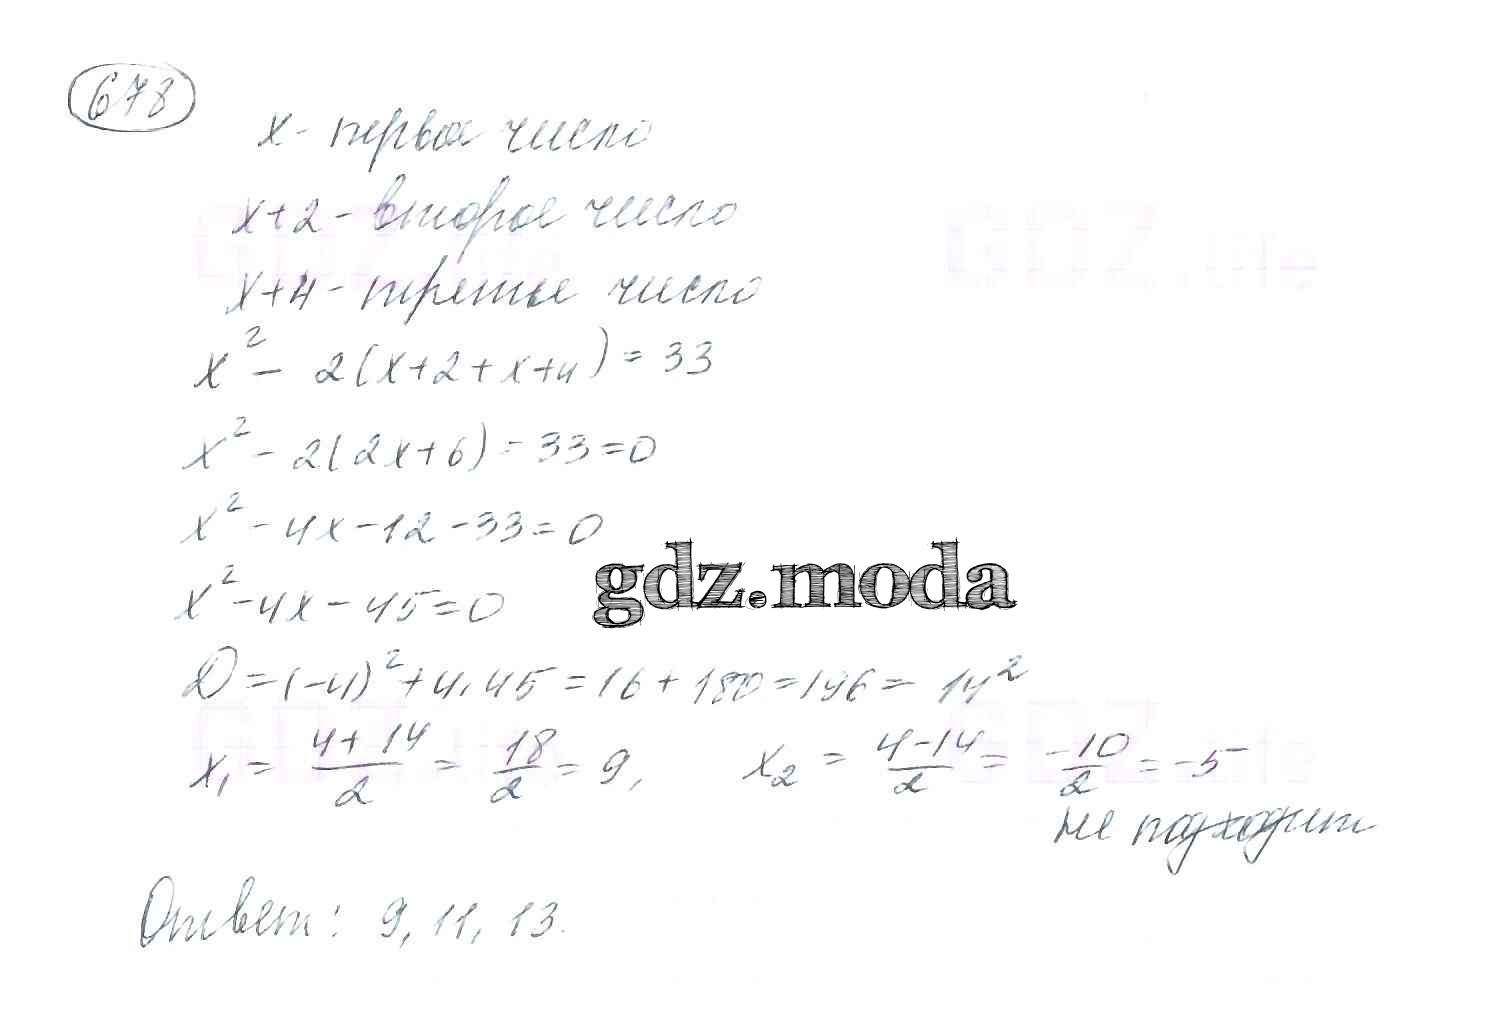 678
x - первое число
x+2 - второе число
x+4 - третье число
x² - 2(x+2+x+4) = 33
x² - 2(2x+6) - 33=0
x² - 4x - 12 - 33 = 0
x² - 4x - 45 = 0
gdz.moda
D = (-4)² + 4·45 = 16 + 180 = 196 = 14²
x₁ = (4+14)/2 = 18/2 = 9, x₂ = (4-14)/2 = -10/2 = -5
не подходит
Ответ: 9, 11, 13.